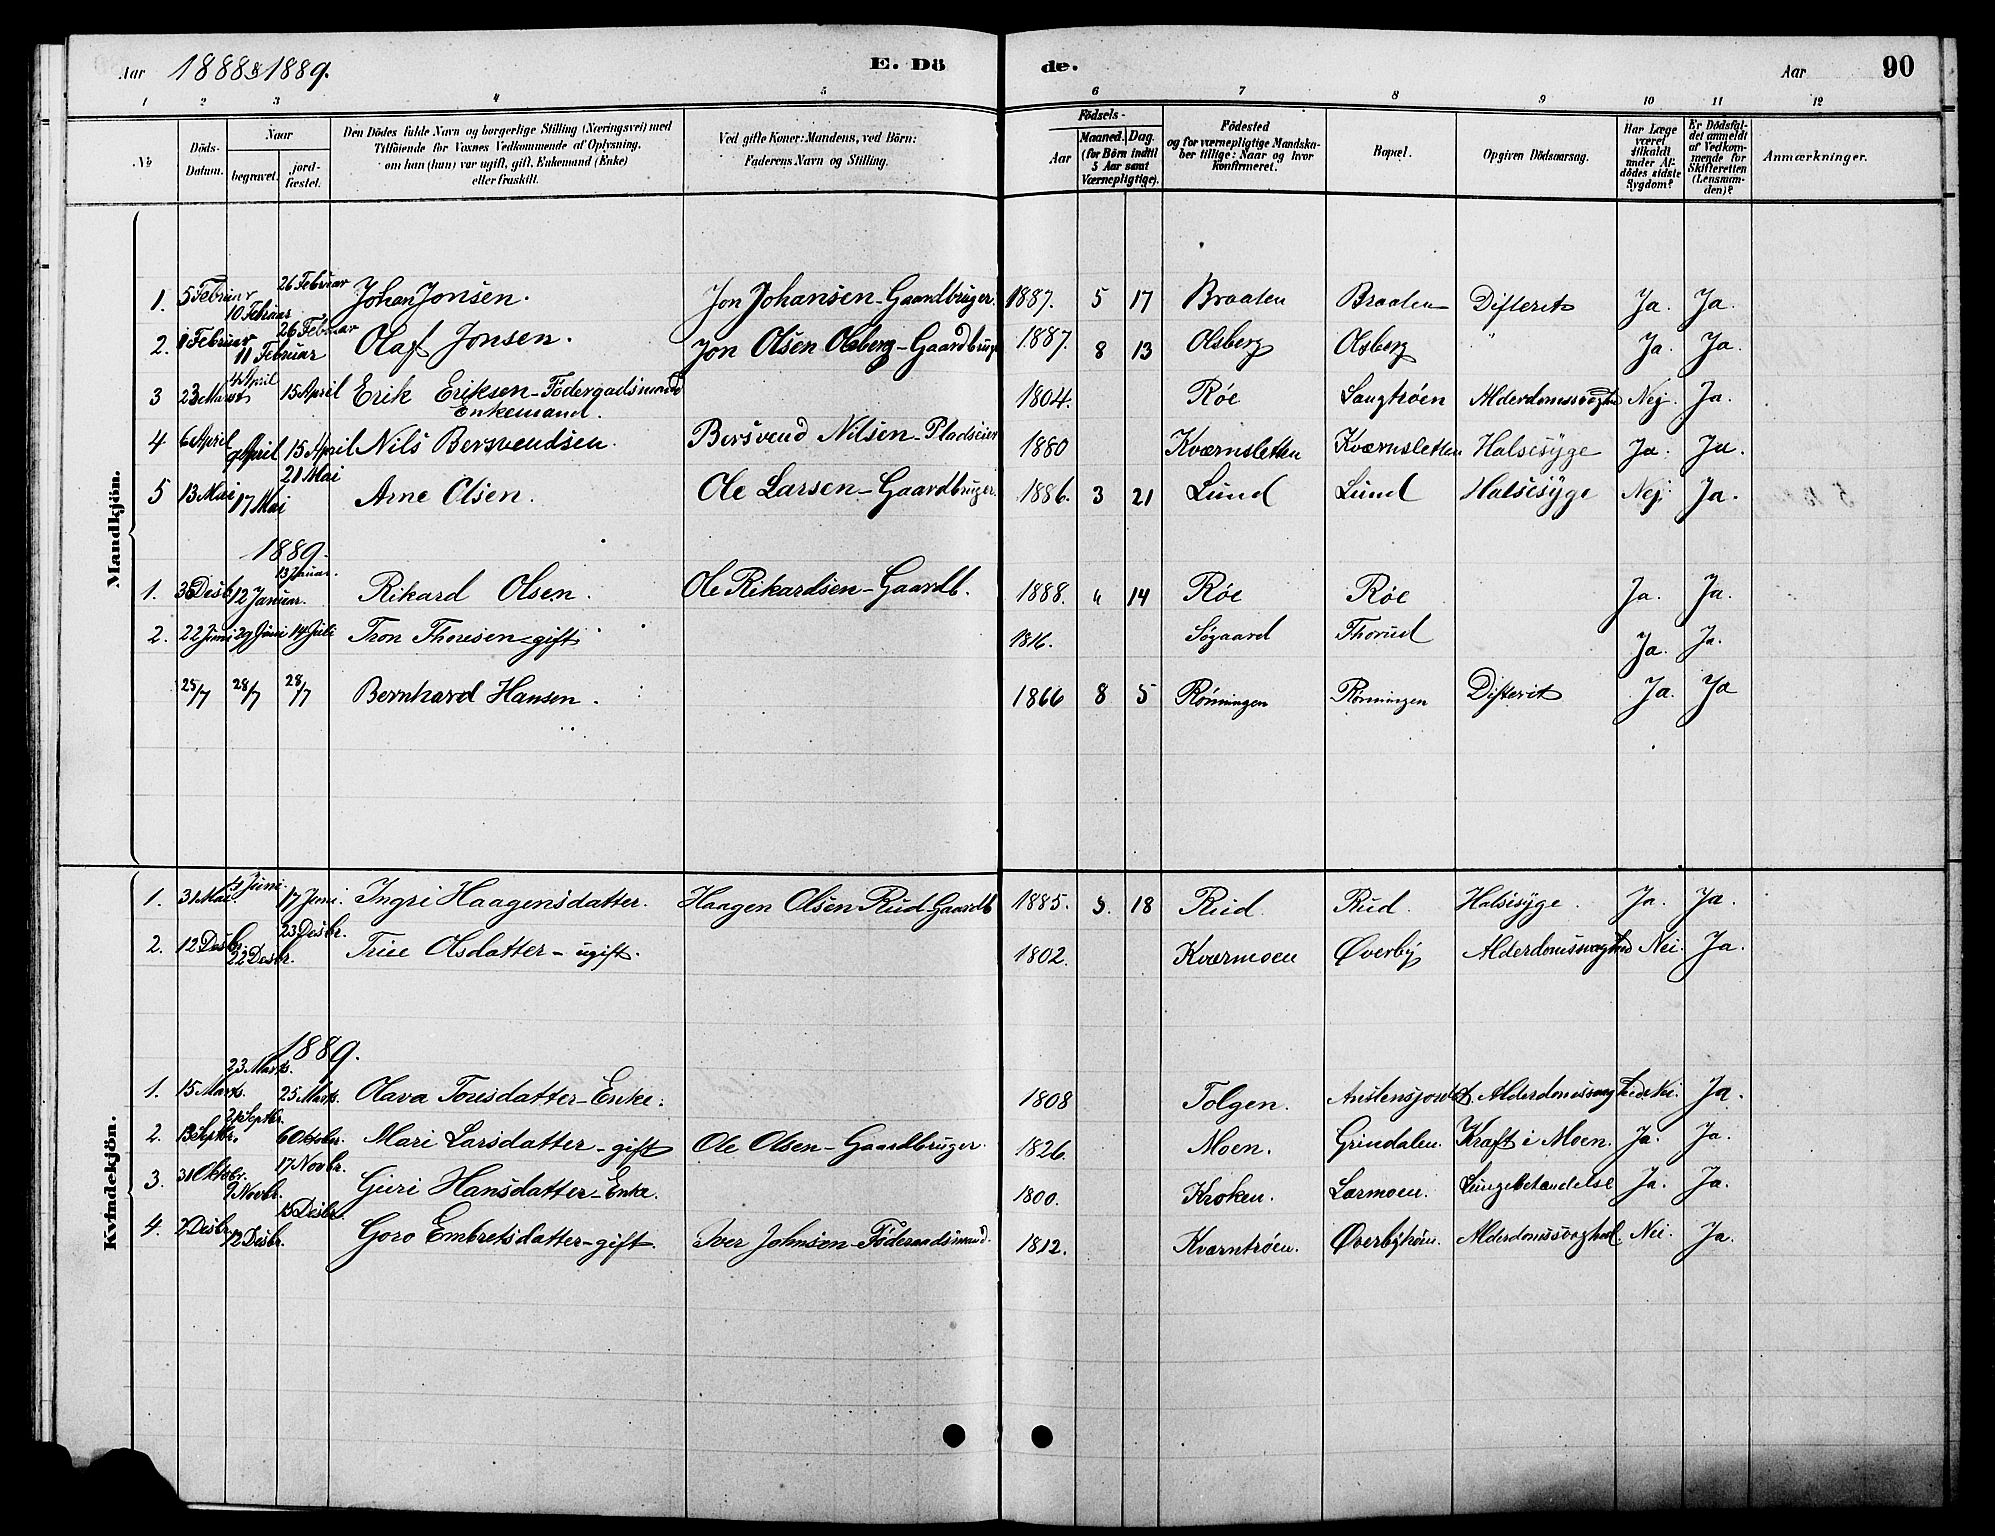 Aar 1888 & 1889. E. Dö de. Aar 90
1 2 3 4 5 6 7 8 9 10 11 12
No
Döds-Datum.
Naar begravet. jordfæstet.
Den Dödes fulde Navn og borgerlige Stilling (Næringsvei) med
Tilföiende for Voxnes Vedkommende af Oplysning,
om han (hun) var ugift, gift, Enkemand (Enke)
eller fraskilt.
Ved gifte Koner: Mandens, ved Börn:
Faderens Navn og Stilling.
Födsels-
Aar Maaned. Dag.
(for Börn indtil
5 Aar samt
Værnepligtige).
Födested
og for værnepligtige Mandskaber tillige: Naar og hvor
konfirmeret.
Bopæl.
Opgiven Dödsaarsag.
Har Læge
været
tilkaldt
under Afdödes sidste
Sygdom?
Er Dödsfaldet anmeldt
af Vedkommende for
Skifteretten
(Lensmanden)?
Anmærkninger.
Mandkjön.
1. 5 Februar 10 Februar 26 Februar Johan Jonsen. Jon Johansen - Gaardbruger. 1887. 5 17 Braaten Braaten Difterit Ja. Ja.
2. 1 Februar 11 Februar 26 Februar Olaf Jonsen. Jon Olsen Olsberg - Gaardbruger 1887. 8 13 Olsberg Olsberg " Ja. Ja.
3 23 Marts 4 April 15 April Erik Eriksen - Födergadsmand Enkemand. 1804. Røe Langtrøen Alderdomssvaghed Nej. Ja.
4 6 April 9 April 15 April Nils Bersvendsen Bersvend Nilsen - Pladseier 1880 Kværnsletten Kværnsletten Halsesÿge Ja. Ja.
5 13 Mai 17 Mai 21 Mai Arne Olsen. Ole Larsen - Gaardbruger. 1886. 3 21 Lund Lund Halsesÿge Nej. Ja.
1889.
1. Desb 12 Januar. 13 Januar. Rikard Olsen. Ole Rikardsen - Gaardb. 1888. 4 14 Røe Røe Ja. Ja.
2. 22 Juni 29 Juni 14 Juli Tron Thoresen - gift 1816. Søgaard Thorud Ja. Ja.
25/7 28/7 28/7 Bernhard Hansen. 1866 8 5 Rønningen Rønningen Difterit Ja. Ja
Kvindekjön.
1. 31 Mai Juni. 17 Juni. Ingri Haagensdatter. Haagen Olsen Rud Gaardb 1885. 5. 18 Rud. Rud. Halsesÿge. Ja. Ja.
2. 12 Desbr. 22 Desbr. 23 Desbr. Trie Olsdatter - ugift. 1802. Kværmoen Øverby Alderdomssvaghed Nei. Ja.
1889.
1. 15 Marts. 23 Marts. 25 Marts. Olava Torisdatter - Enke. 1808 Tolgen. Alderdomssvaghed Nei. Ja.
2. Septbr. 21 Septbr. 6 Oktobr. Mari Larsdatter - gift Ole Olsen - Gaardbruger. 1826. Moen. Grindalen. Kræft i Moen. Ja. Ja.
3. 31 Oktobr. 9 Novbr. 17 Novbr. Guri Hansdatter - Enke. 1800. Kroken. Lærmoen. Lungebetændelse Ja. Ja.
4. 2 Desbr. 12 Desbr. 15 Desbr. Goro Embretsdatter - gift. Iver Johnsen - Föderaadsmand. 1812. Kværntrøen. Øverbÿtrøen. Alderdomssvaghed. Nei. Ja.